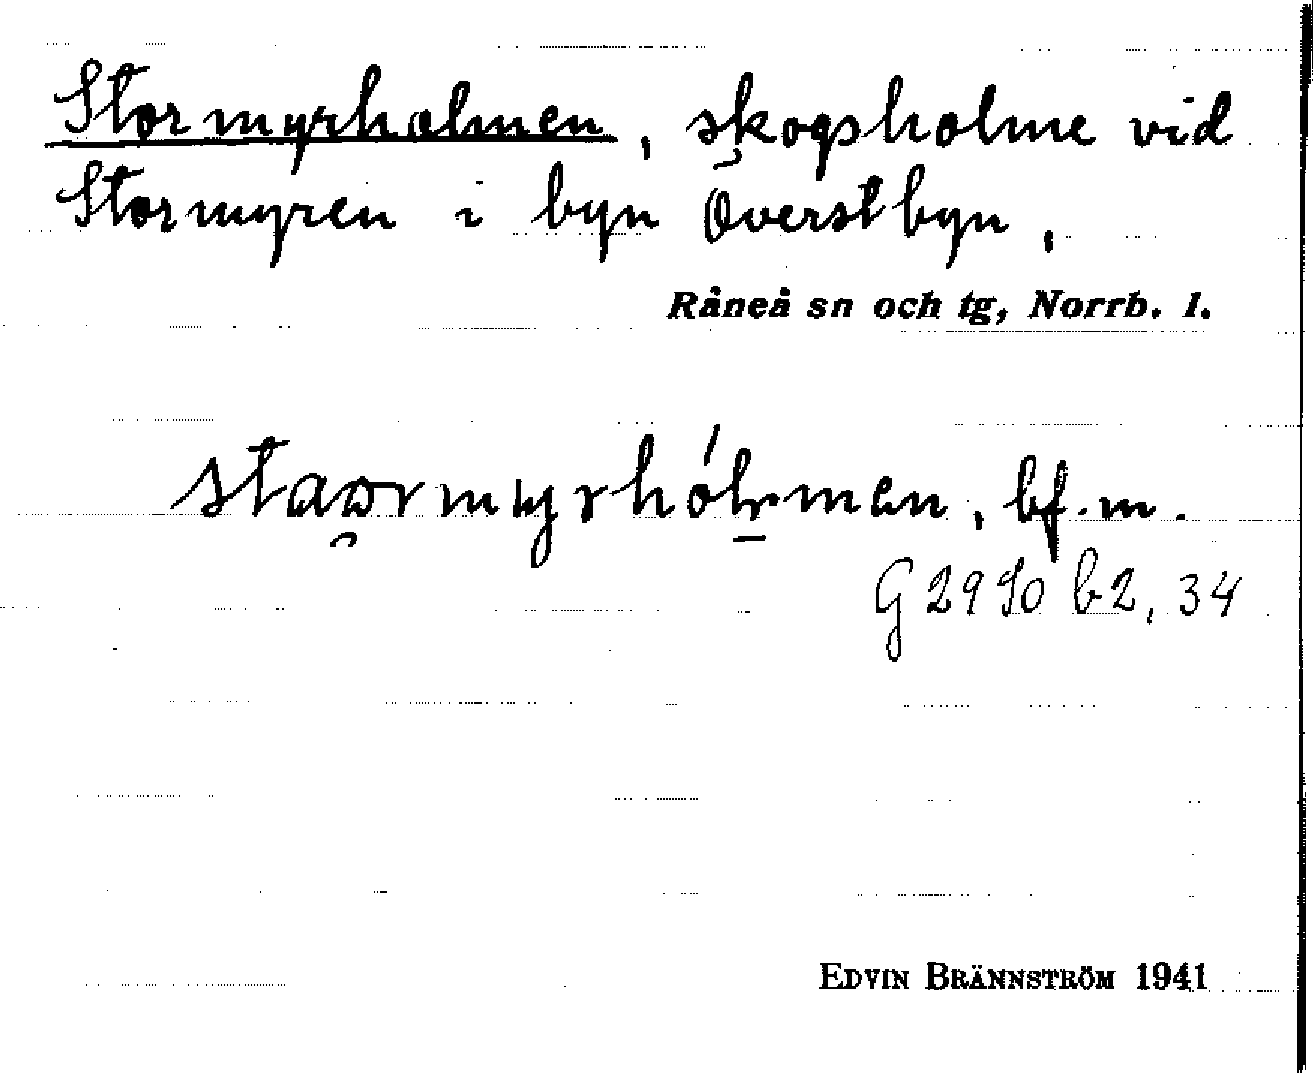 Stormyrholmen, skogsholme vid
Stormyren i byn Överstbyn,
Råneå sn och tg, Norrb. l.
bf. m.
G 2990 b2, 34
EDVIN BRÄNNSTRÖM 1941